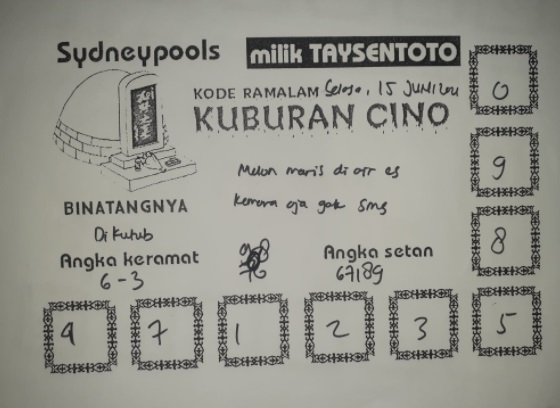 Sydneypools milik TAYSENTOTO
KODE RAMALAM Selasa, 15 JUNI
KUBURAN CINO
Melon manis di air es
kemana aja gak sms
BINATANGNYA
Di Kutub
Angka keramat
6-3
Angka setan
67189
0
9
8
9 7 1 2 3 5